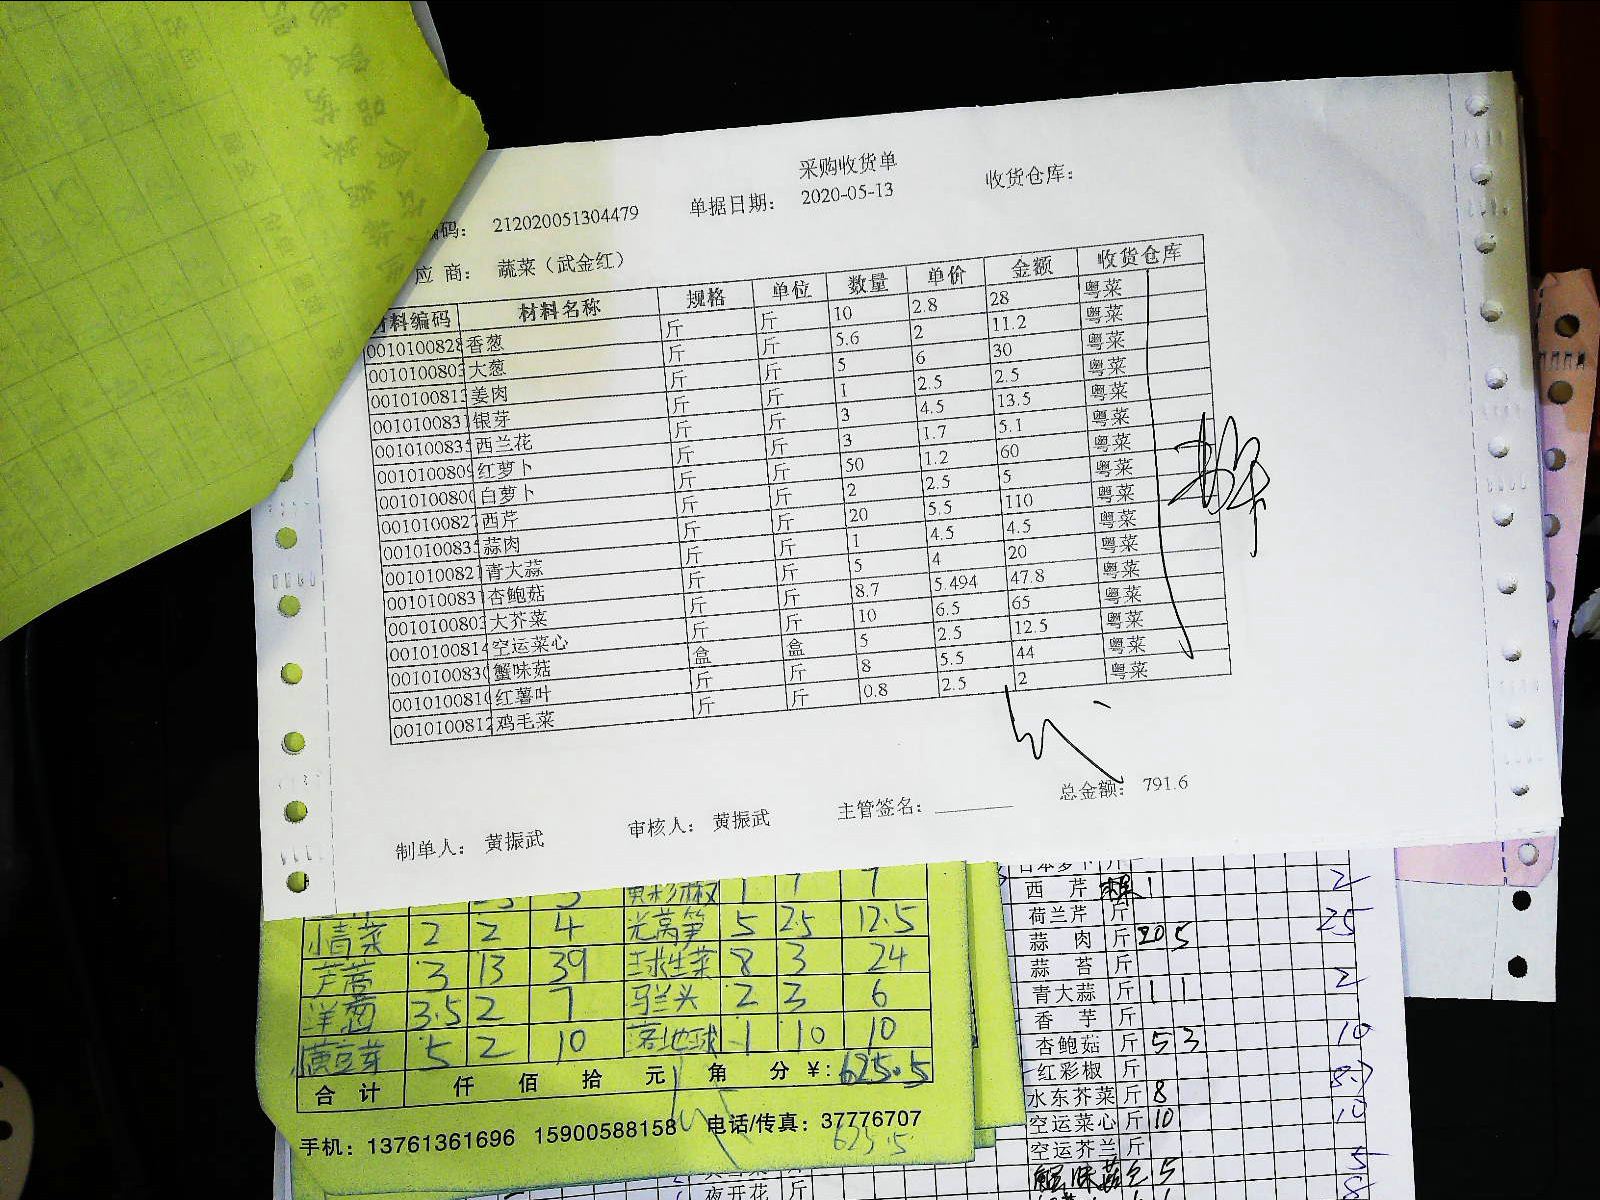 采购收货单
编码： 212020051304479 单据日期： 2020-05-13 收货仓库：
应 商： 蔬菜（武金红）
材料编码 材料名称 规格 单位 数量 单价 金额 收货仓库
0010100828 香葱 斤 斤 10 2.8 28 粤菜
0010100803 大葱 斤 斤 5.6 2 11.2 粤菜
0010100813 姜肉 斤 斤 5 6 30 粤菜
0010100831 银芽 斤 斤 1 2.5 2.5 粤菜
0010100835 西兰花 斤 斤 3 4.5 13.5 粤菜
0010100809 红萝卜 斤 斤 3 1.7 5.1 粤菜
0010100800 白萝卜 斤 斤 50 1.2 60 粤菜
0010100827 西芹 斤 斤 2 2.5 5 粤菜
0010100835 蒜肉 斤 斤 20 5.5 110 粤菜
0010100821 青大蒜 斤 斤 1 4.5 4.5 粤菜
0010100831 杏鲍菇 斤 斤 5 4 20 粤菜
0010100803 大芥菜 斤 斤 8.7 5.494 47.8 粤菜
0010100814 空运菜心 斤 斤 10 6.5 65 粤菜
0010100830 蟹味菇 盒 盒 5 2.5 12.5 粤菜
0010100810 红薯叶 斤 斤 8 5.5 44 粤菜
0010100812 鸡毛菜 斤 斤 0.8 2.5 2 粤菜
总金额： 791.6
制单人： 黄振武 审核人： 黄振武 主管签名：
黄彩椒 1 7 7
小青菜 2 2 4 光莴笋 5 25 12.5
芦蒿 3 13 39 球生菜 8 3 24
洋葱 3.5 2 7 马兰头 2 3 6
黄豆芽 5 2 10 落地球 1 10 10
合 计 仟 佰 拾 元 角 分 ¥: 625.5
手机：13761361696 15900588158 电话/传真：37776707
625.5
日本萝卜 斤
西 芹 1 2
荷兰芹 斤
蒜 肉 斤 20 5 25
蒜 苔 斤
青大蒜 斤 1 1 2
香 芋 斤
杏鲍菇 斤 5 3 10
红彩椒 斤
水东芥菜 斤 8 8.7
空运菜心 斤 10 10
空运芥兰 斤
蟹味菇 5 5
夜开花 斤
8